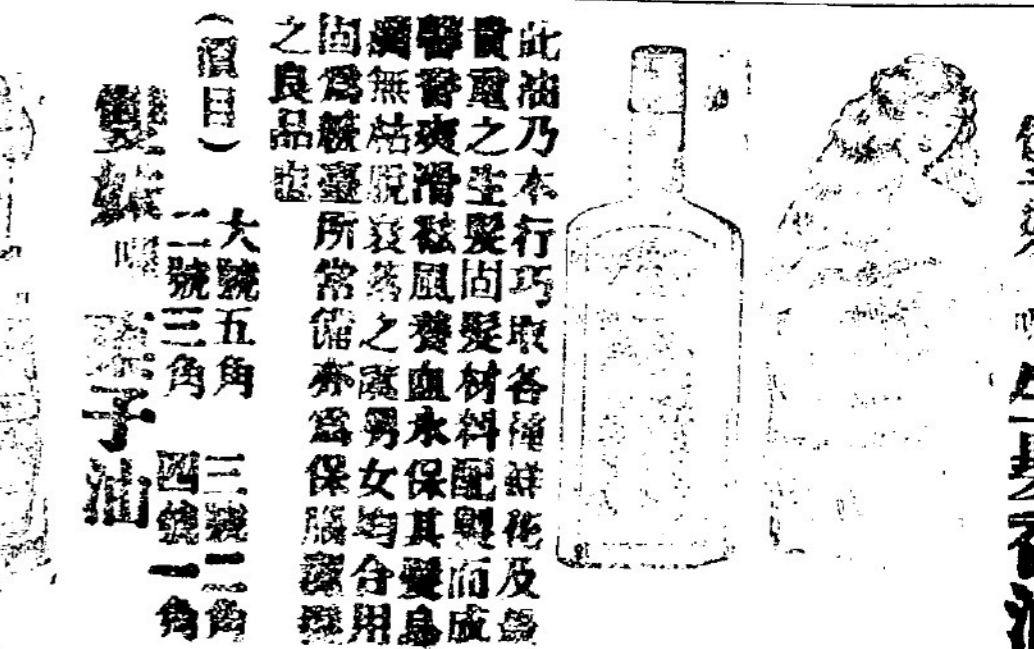 此油乃本行巧取各種鮮花及最
貴重之生髮固髮材料配製而成
馨香爽滑祛風養血永保其髮烏
潤無枯脫衰落之虞男女均合用
固為粧臺所常備亦為保腦潔髮
之良品也
(價目)
大號五角 三號二角
二號三角 四號一角
雙妹嘜 子油